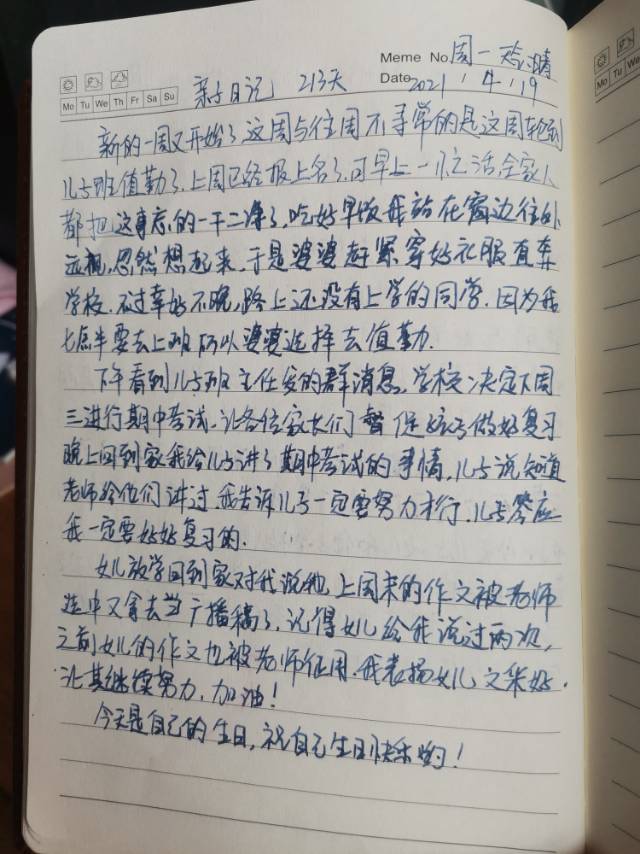 Meme No. 周一 晴
Mo Tu We Th Fr Sa Su 亲子日记 213天 Date 2021 / 4 / 19
新的一周又开始了这周与往周不寻常的是这周轮到
儿子班值勤了.上周已经报上名了.可早上一忙活,全家人
都把这事忘的一干二净了,吃好早饭我站在窗边往外
远视,忽然想起来,于是婆婆赶紧穿好衣服直奔
学校.不过幸好不晚,路上还没有上学的同学.因为我
七点半要去上班所以婆婆选择去值勤.
下午看到儿子班主任发的群消息,学校决定下周
三进行期中考试,让各位家长们督促孩子做好复习
晚上回到家我给儿子讲了期中考试的事情,儿子说知道
老师给他们讲过.我告诉儿子一定要努力才行.儿子答应
我一定要好好复习的.
女儿放学回到家对我说她上周末的作文被老师
选中又拿去当广播稿了,记得女儿给我说过两次,
之前女儿的作文也被老师征用.我表扬女儿文采好.
让其继续努力,加油!
今天是自己的生日,祝自己生日快乐哟!
Mo Tu We Th